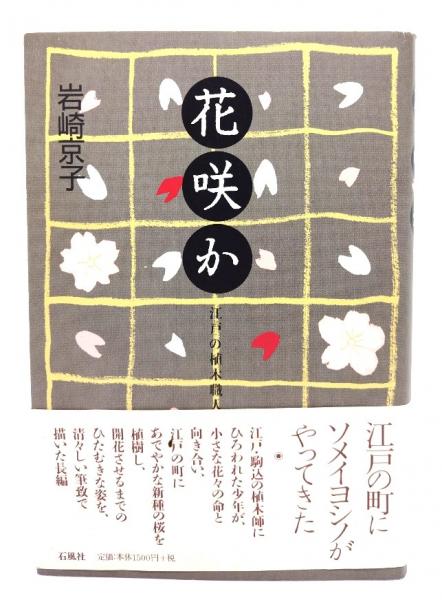 花咲か
江戸の植木職人
岩崎京子
江戸の町に
ソメイヨシノが
やってきた
江戸・駒込の植木師に
ひろわれた少年が、
小さな花々の命と
向き合い、
江戸の町に
あでやかな新種の桜を
植樹し、
開花させるまでの
ひたむきな姿を、
清々しい筆致で
描いた長編
石風社
定価:本体1500円+税